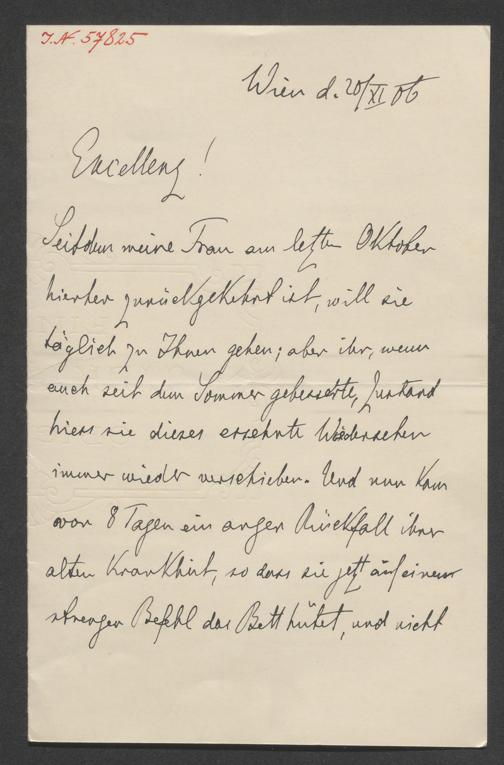 J.N. 57825
Wien d. 20/XI 06
Excellenz!
Seitdem meine Frau am letzten Oktober
hierher zurückgekehrt ist, will sie
täglich zu Ihnen gehen; aber ihr, wenn
auch seit dem Sommer gebesserte, Zustand
hiess sie dieses ersehnte Wiedersehen
immer wieder verschieben. Und nun kam
vor 8 Tagen ein arger Rückfall ihrer
alten Krankheit, so dass sie jetzt auf einen
strengen Befehl das Bett hütet, und nicht